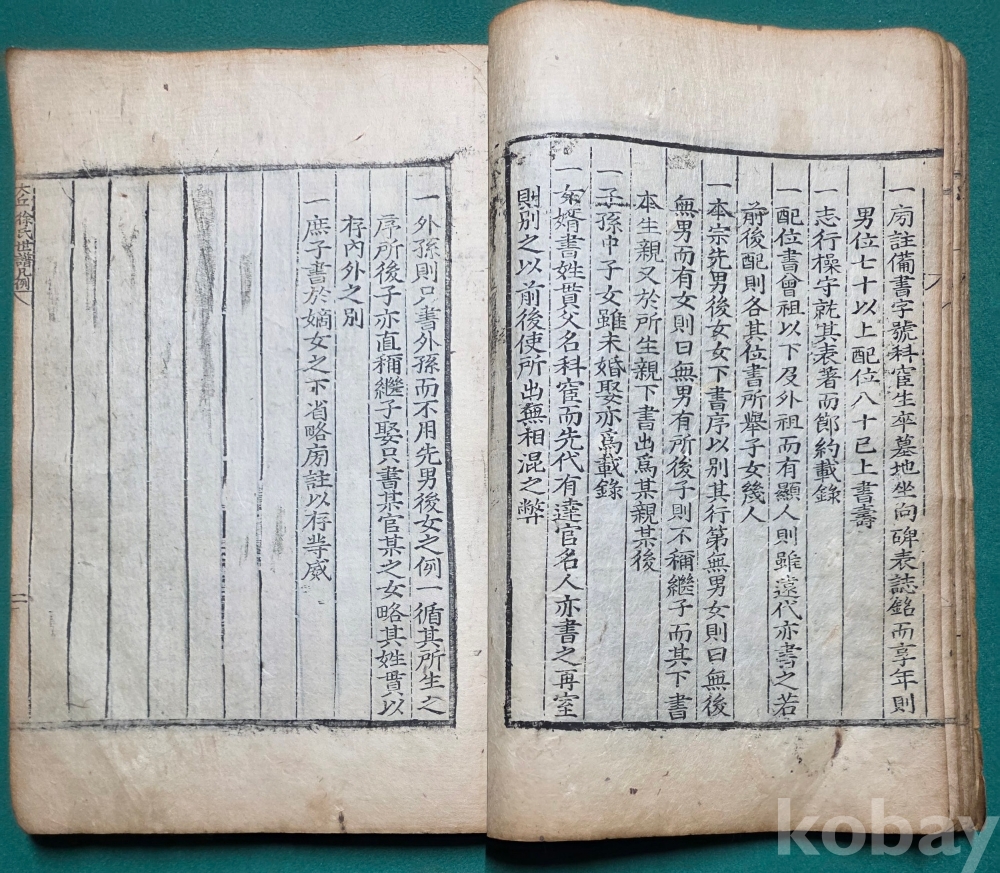 一房註備書字號科宦生卒墓地坐向碑表誌銘而享年則
男位七十以上配位八十已上書壽
一志行操守就其表著而節約載錄
一配位書曾祖以下及外祖而有顯人則雖遠代亦書之若
前後配則各其位書所舉子女幾人
一本宗先男後女女下書序以別其行第無男女則曰無後
無男而有女則曰無男有所後子則不稱繼子而其下書
本生親又於所生親下書出爲某親某後
一子孫中子女雖未婚娶亦爲載錄
一女婿書姓貫父名科宦而先代有達官名人亦書之再室
則別之以前後使所出無相混之弊
一外孫則只書外孫而不用先男後女之例一循其所生之
序所後子亦直稱繼子娶只書某官某之女略其姓貫以
存內外之別
一庶子書於嫡女之下省略房註以存等威
大丘徐氏世譜凡例
二
kobay